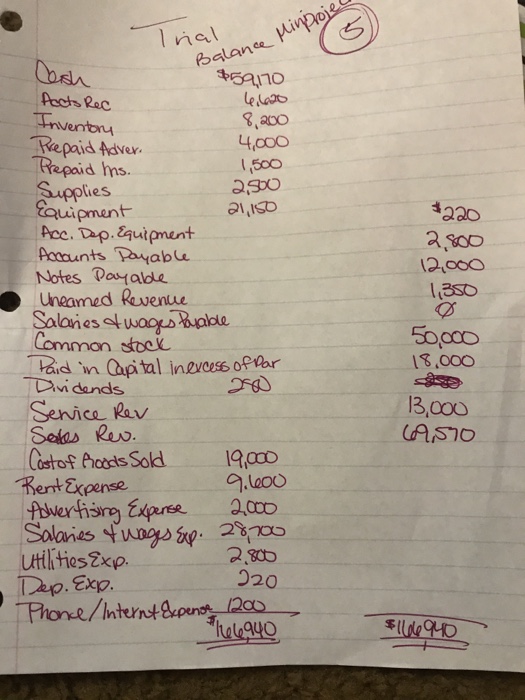 Trial Balance Miniproject 5
Cash $59,170
Accts Rec 6,620
Inventory 8,200
Prepaid Adver. 4,000
Prepaid Ins. 1,500
Supplies 2,500
Equipment 21,150
Acc. Dep. Equipment $220
Accounts Payable 2,800
Notes Payable 12,000
Unearned Revenue 1,350
Salaries & wages Payable Ø
Common stock 50,000
Paid in Capital in excess of Par 18,000
Dividends 280
Service Rev 13,000
Sales Rev. 69,570
Cost of Goods Sold 19,000
Rent Expense 9,600
Advertising Expense 2,000
Salaries & wages Exp. 28,700
Utilities Exp. 2,800
Dep. Exp. 220
Phone/Internt Expense 1200
$166,940 $166,940